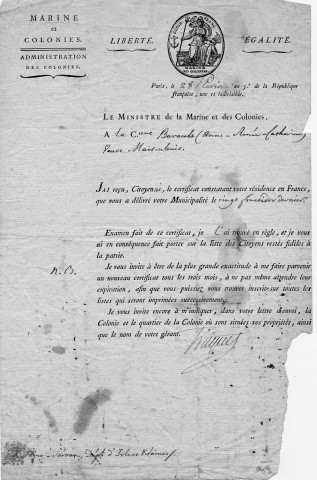 MARINE
et
COLONIES.
ADMINISTRATION
DES COLONIES.
LIBERTÉ.
ÉGALITÉ.
MARINE
ET COLONIES
Paris, le 28 au 3.e de la République
française, une et indivisible.
LE MINISTRE de la Marine et des Colonies,
A La C.enne (Anne-
Veuve
J'AI reçu, Citoyenne, le certificat constatant votre résidence en France,
que vous a délivré votre Municipalité le vingt frimaire dernier.
Examen fait de ce certificat, je L'ai trouvé en règle, et je vous
ai en conséquence fait porter sur la liste des Citoyens restés fidèles à
la patrie.
Je vous invite à être de la plus grande exactitude à me faire parvenir
un nouveau certificat tous les trois mois, à ne pas même attendre leur
expiration, afin que vous puissiez vous trouver inscrite sur toutes les
listes qui seront imprimées successivement.
Je vous invite encore à m'indiquer, dans votre lettre d'envoi, la
Colonie et le quartier de la Colonie où sont situées vos propriétés, ainsi
que le nom de votre gérant.
Servan, Dép.t d'Isle et Vilaine